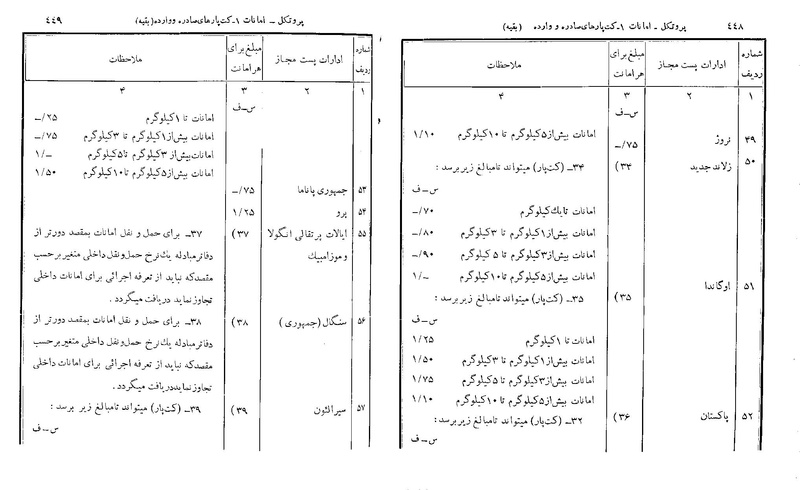 ۴۴۸ پروتکل ـ امانات ۱ـ کت‌پارهای صادره و وارده (بقیه)
شماره ردیف ادارات پست مجاز مبلغ برای هر امانت ملاحظات
۱ ۲ ۳ ۴
س ـ ف
۴۹ نروژ ـ/۷۵ امانات بیش از ۵ کیلوگرم تا ۱۰ کیلوگرم ۱/۱۰
۵۰ زلاند جدید ۳۴) ۳۴ـ (کت‌پار) میتواند تا مبالغ زیر برسد:
س ـ ف
امانات تا یك کیلوگرم ـ/۷۰
امانات بیش از ۱ کیلوگرم تا ۳ کیلوگرم ـ/۸۰
امانات بیش از ۳ کیلوگرم تا ۵ کیلوگرم ـ/۹۰
امانات بیش از ۵ کیلوگرم تا ۱۰ کیلوگرم ۱/ـ
۵۱ اوگاندا ۳۵) ۳۵ـ (کت‌پار) میتواند تا مبالغ زیر برسد:
س ـ ف
امانات تا ۱ کیلوگرم ۱/۲۵
امانات بیش از ۱ کیلوگرم تا ۳ کیلوگرم ۱/۵۰
امانات بیش از ۳ کیلوگرم تا ۵ کیلوگرم ۱/۷۵
امانات بیش از ۵ کیلوگرم تا ۱۰ کیلوگرم ۱/۱۰
۵۲ پاکستان ۳۶) ۳۲ـ (کت‌پار) میتواند تا مبالغ زیر برسد:
س ـ ف
پروتکل ـ امانات ۱ـ کت‌پارهای صادره و وارده (بقیه) ۴۴۹
شماره ردیف ادارات پست مجاز مبلغ برای هر امانت ملاحظات
۱ ۲ ۳ ۴
س ـ ف
امانات تا ۱ کیلوگرم ـ/۲۵
امانات بیش از ۱ کیلوگرم تا ۳ کیلوگرم ـ/۷۵
امانات بیش از ۳ کیلوگرم تا ۵ کیلوگرم ۱/ـ
امانات بیش از ۵ کیلوگرم تا ۱۰ کیلوگرم ۱/۵۰
۵۳ جمهوری پاناما ـ/۷۵
۵۴ پرو ۱/۲۵
۵۵ ایالات پرتقالی انگولا ۳۷) ۳۷ـ برای حمل و نقل امانات بمقصد دورتر از
و موزامبیك دفاتر مبادله یك نرخ حمل و نقل داخلی متغیر برحسب
مقصد که نباید از تعرفه اجرائی برای امانات داخلی
تجاوز نماید دریافت میگردد.
۵۶ سنگال (جمهوری) ۳۸) ۳۸ـ برای حمل و نقل امانات بمقصد دورتر از
دفاتر مبدله یك نرخ حمل و نقل داخلی متغیر برحسب
مقصد که نباید از تعرفه اجرائی برای امانات داخلی
تجاوز نماید دریافت میگردد.
۵۷ سیرالئون ۳۹) ۳۹ـ (کت‌پار) میتواند تا مبالغ زیر برسد:
س ـ ف